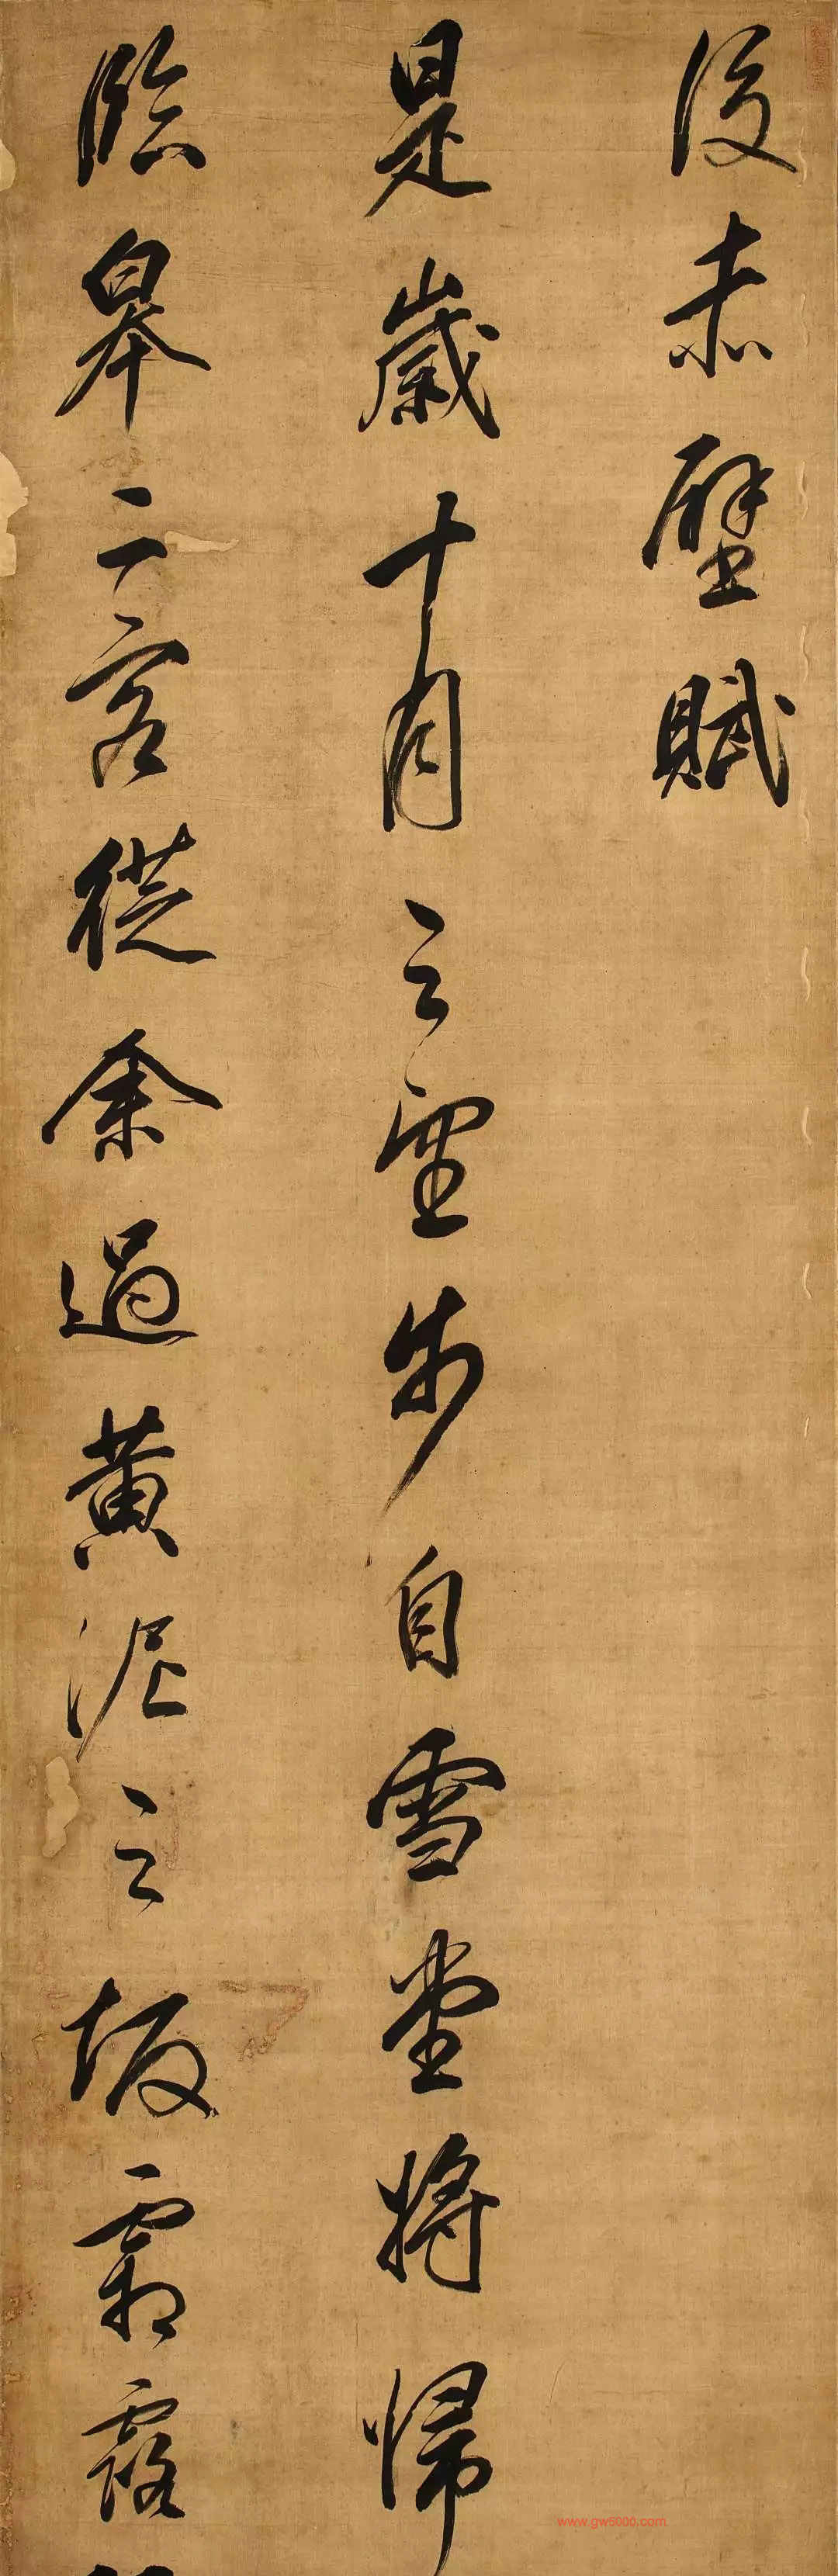 後赤壁賦
是歲十月之望步自雪堂將歸
臨皋二客從余過黃泥之坂霜露
www.gw5000.com